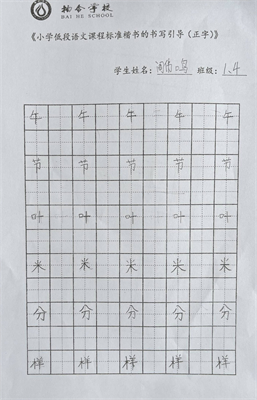 柏合学校
BAI HE SCHOOL
《小学低段语文课程标准楷书的书写引导（正字）》
学生姓名： 班级：1.4
午 午 午 午 午
节 节 节 节 节
叶 叶 叶 叶 叶
米 米 米 米 米
分 分 分 分 分
样 样 样 样 样